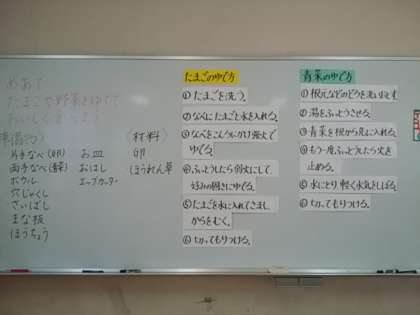 めあて
たまごや野菜をゆでて
おいしく食べよう
準備
片手なべ(卵)
両手なべ(青菜)
ボウル
穴じゃくし
さいばし
まな板
ほうちょう
お皿
おはし
エッグカッター
〈材料〉
卵
ほうれん草
たまごのゆで方
①たまごを洗う。
②なべにたまごと水を入れる。
③なべをこんろにかけ強火で
ゆでる。
④ふっとうしたら弱火にして
好みの固さにゆでる。
⑤たまごを水に入れてさまし
からをむく。
⑥切ってもりつける。
青菜のゆで方
①根元などのどろを洗い落とす
②湯をふっとうさせる。
③青菜を根から先に入れる。
④もう一度ふっとうしたら火を
止める。
⑤水にとり軽く水気をしぼる。
⑥切ってもりつける。